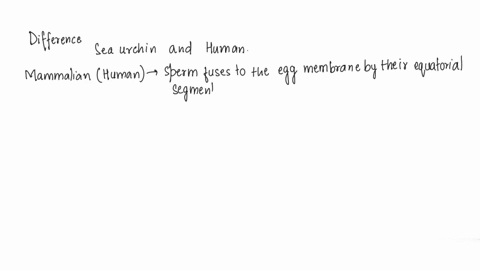 Difference
Sea urchin and Human.
Mammalian (Human) → Sperm fuses to the egg membrane by their equatorial
segment